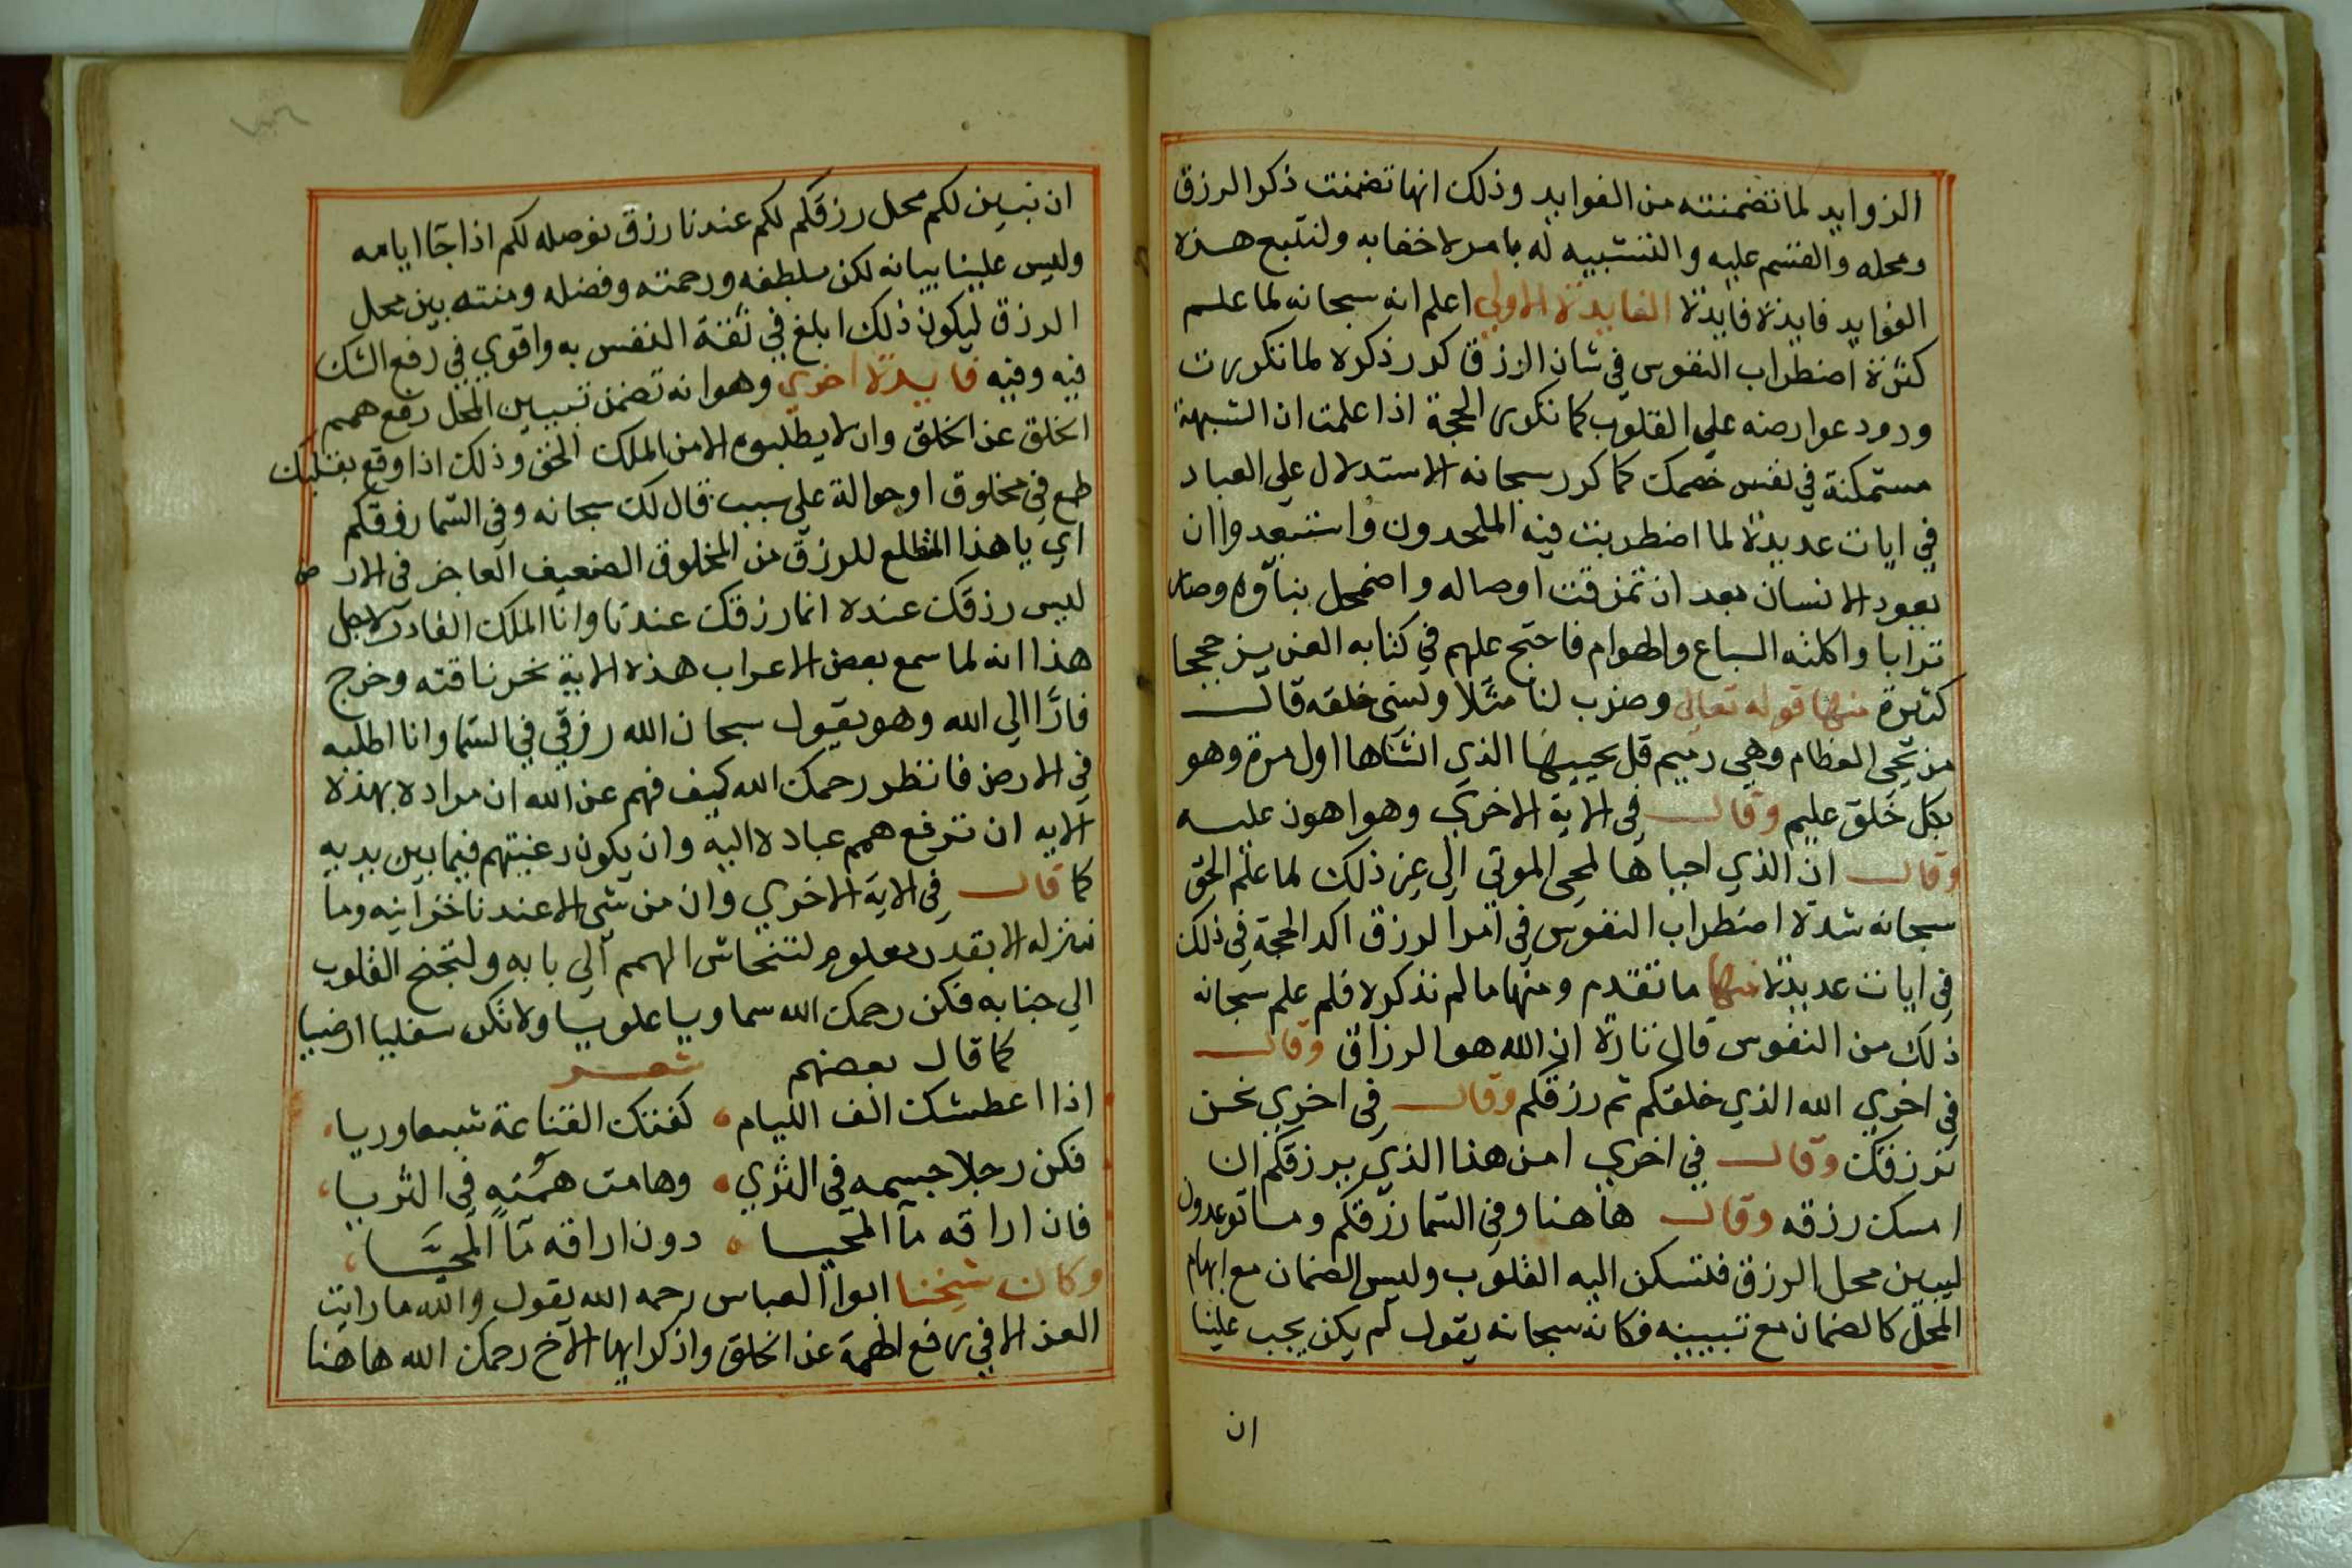 الزوايد لما تضمنته من الفوايد وذلك انها تضمنت ذكر الرزق
ومحله والقسم عليه والتشبيه له بامر لا خفا به ولنتبع هذه
الفوايد فايدة فايدة الفايدة الاولي اعلم انه سبحانه لما علم
كثرة اضطراب النفوس في شان الرزق كرر ذكره لما تكررت
ورود عوارضه علي القلوب كما تكرر الحجة اذا علمت ان الشبهة
مستمكنة في نفس خصمك كما كرر سبحانه الاستدلال علي العباد
في ايات عديدة لما اضطربت فيه الملحدون واستبعدوا ان
يعود الانسان بعد ان تمزقت اوصاله واضمحل بناؤه وصار
ترابا واكلته السباع والهوام فاحتج عليهم في كتابه العزيز حججا
كثيرة منها قوله تعالي وضرب لنا مثلا ونسي خلقه قال
من يحي العظام وهي رميم قل يحييها الذي انشاها اول مرة وهو
بكل خلق عليم وقال في الاية الاخري وهو اهون عليه
وقال ان الذي احياها لمحي الموتي الي غير ذلك لما علم الحق
سبحانه شدة اضطراب النفوس في امر الرزق اكد الحجة في ذلك
في ايات عديدة منها ما تقدم ومنها ما لم نذكره فلم علم سبحانه
ذلك من النفوس قال تارة ان الله هو الرزاق وقال
في اخري الله الذي خلقكم ثم رزقكم وقال في اخري نحن
نرزقك وقال في اخري امن هذا الذي يرزقكم ان
امسك رزقه وقال هاهنا وفي السما رزقكم وما توعدون
ليبين محل الرزق فتسكن اليه القلوب وليس الضمان مع ابهام
المحل كالضمان مع تبيينه فكانه سبحانه يقول لم يكن يجب علينا
ان
ان نبين لكم محل رزقكم لكم عندنا رزق نوصله لكم اذا جا ايامه
وليس علينا بيانه لكن بلطفه ورحمته وفضله ومنته بين محل
الرزق ليكون ذلك ابلغ في ثقة النفس به واقوي في رفع الشك
فيه وفيه فايدة اخري وهو انه تضمن تبيين المحل رفع همم
الخلق عن الخلق وان لا يطلبوه الا من الملك الحق وذلك اذا وقع بقلبك
طمع في مخلوق او حوالة علي سبب قال لك سبحانه وفي السما رزقكم
اي يا هذا المتطلع للرزق من المخلوق الضعيف العاجز في الارض
ليس رزقك عنده انما رزقك عندنا وانا الملك القادر لاجل
هذا انه لما سمع بعض الاعراب هذه الاية نحر ناقته وخرج
فارّا الي الله وهو يقول سبحان الله رزقي في السما وانا اطلبه
في الارض فانظر رحمك الله كيف فهم عن الله ان مراده بهذه
الايه ان ترفع همم عباده اليه وان يكون رغبتهم فيما بين يديه
كما قال في الاية الاخري وان من شي الا عندنا خزاينه وما
ننزله الا بقدر معلوم لتنحاش الهمم الي بابه ولتجنح القلوب
الي جنابه فكن رحمك الله سماويا علويا ولا تكن سفليا ارضيا
كما قال بعضهم شعر
اذا اعطشتك الف الليام كفتك القناعة شبعا وريا
فكن رجلا جسمه في الثري وهامت همته في الثريا
فان اراقه مآ المحيا دون اراقه مآ المحيّا
وكان شيخنا ابوا العباس رحمه الله يقول والله ما رايت
العز الا في رفع الهمة عن الخلق واذكر ايها الاخ رحمك الله هاهنا